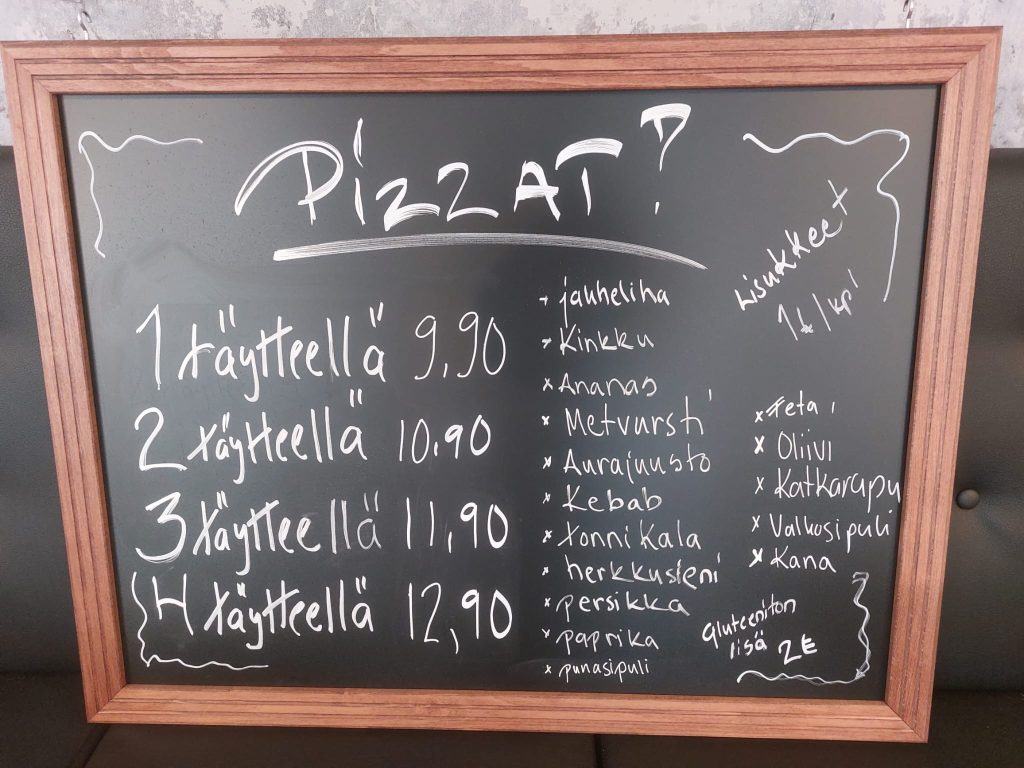 PIZZAT?
1 täytteellä 9,90
2 täytteellä 10,90
3 täytteellä 11,90
4 täytteellä 12,90
jauheliha
Kinkku
x Ananas
x Metvursti
x Aurajuusto
x Kebab
x tonnikala
x herkkusieni
x persikka
x paprika
x punasipuli
Lisukkeet
1€/kpl
x Feta
x Oliivi
x Katkarapu
x Valkosipuli
x Kana
Gluteeniton
lisä 2€